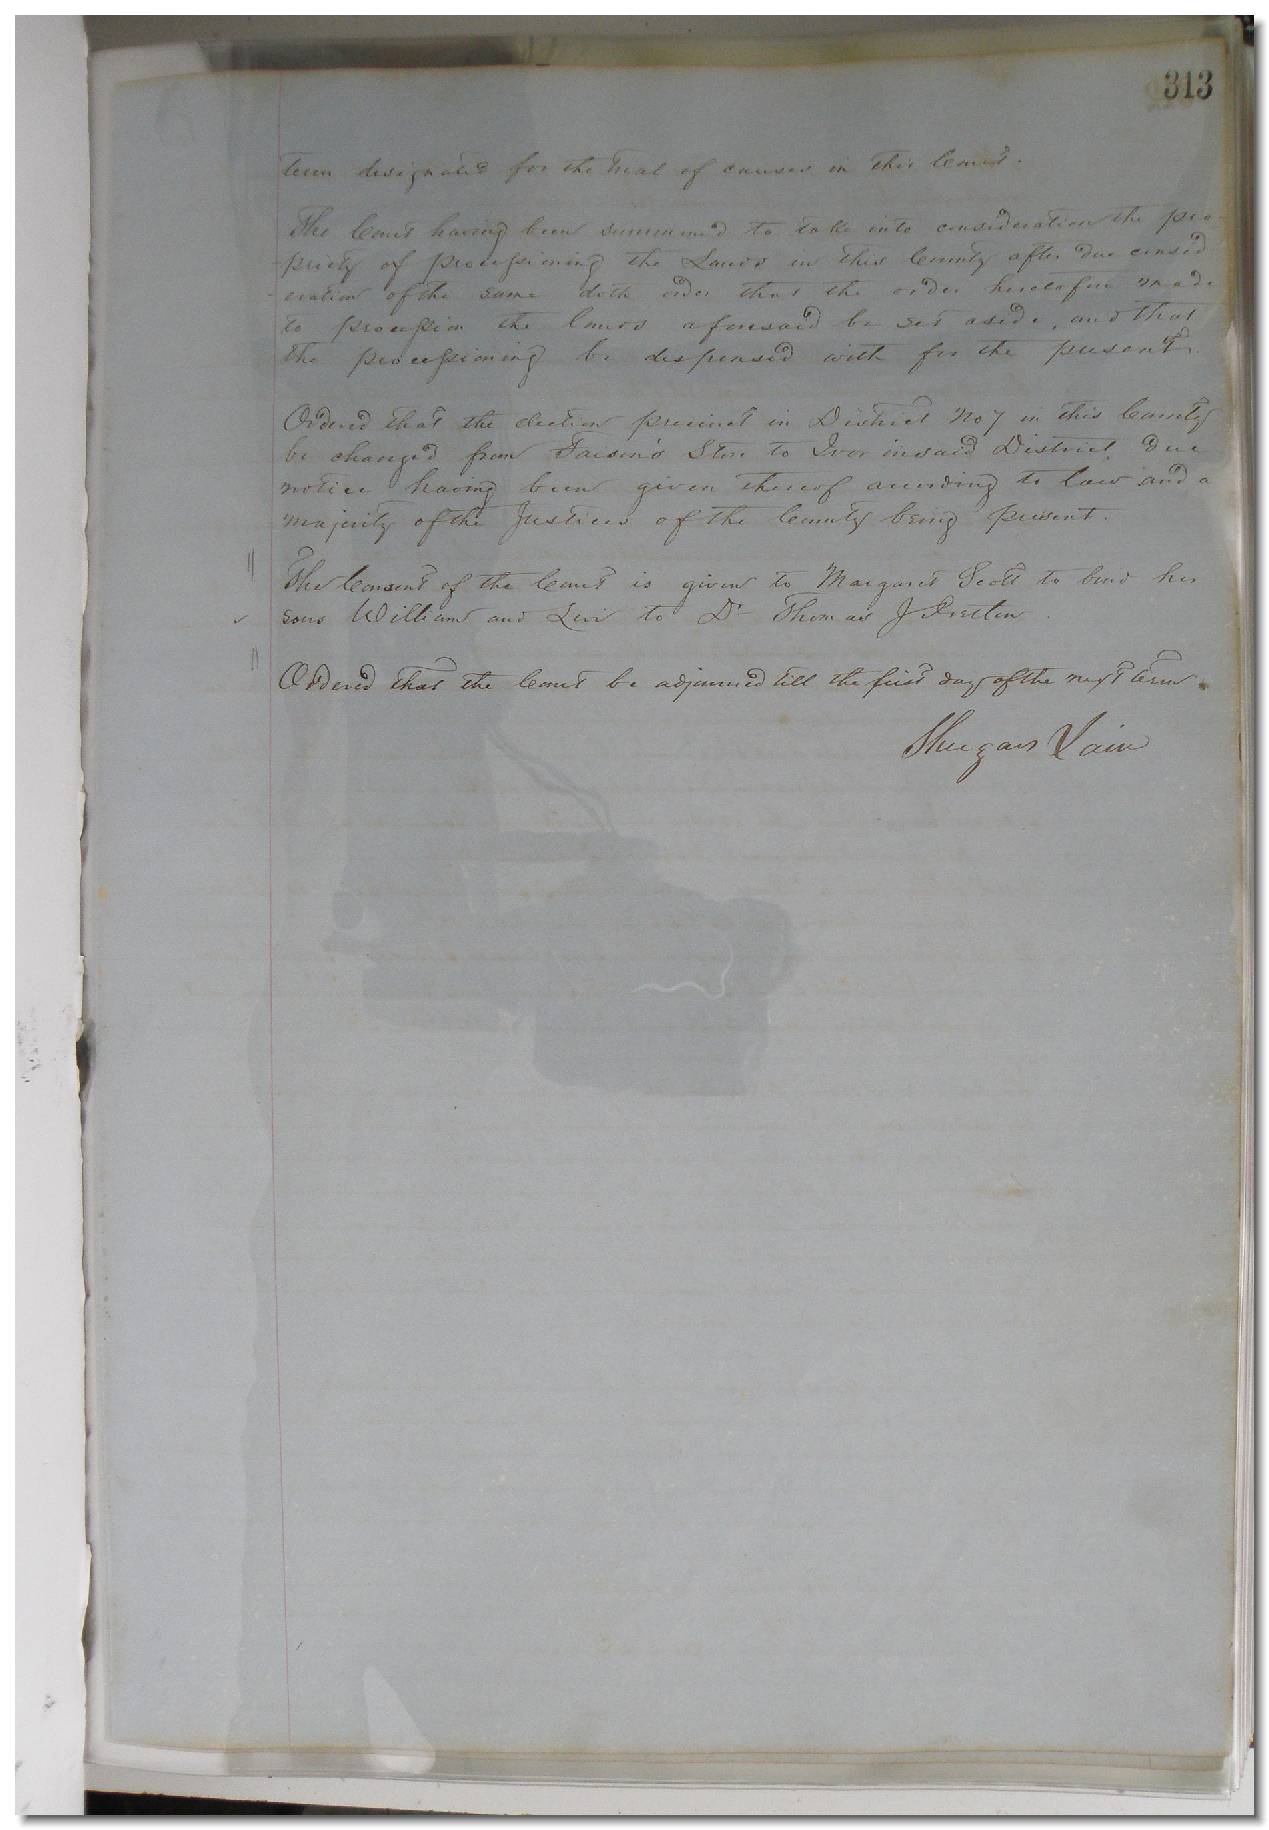 313
term designated for the trial of causes in this Court.
The Court having been summoned to take into consideration the pro-
-priety of processioning the Lands in this County after due consid-
-eration of the same doth order that the order heretofore made
to procession the lands aforesaid be set aside, and that
the processioning be dispensed with for the present.
Ordered that the election precinct in District No 7 in this County
be changed from Store to Ivor in said District, Due
notice having been given thereof according to law and a
majority of the Justices of the County being present.
The Consent of the Court is given to Margaret Scott to bind her
sons William and Levi to Dr Thomas J
Ordered that the Court be adjourned till the first day of the next term.
Shugars Vain